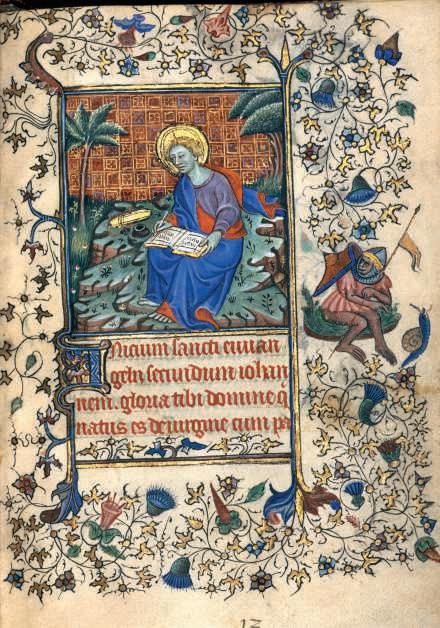 Nicium sancti euuan
gelii secundum iohan
nem. gloria tibi domine q
natus es de uirgine cum pa
12